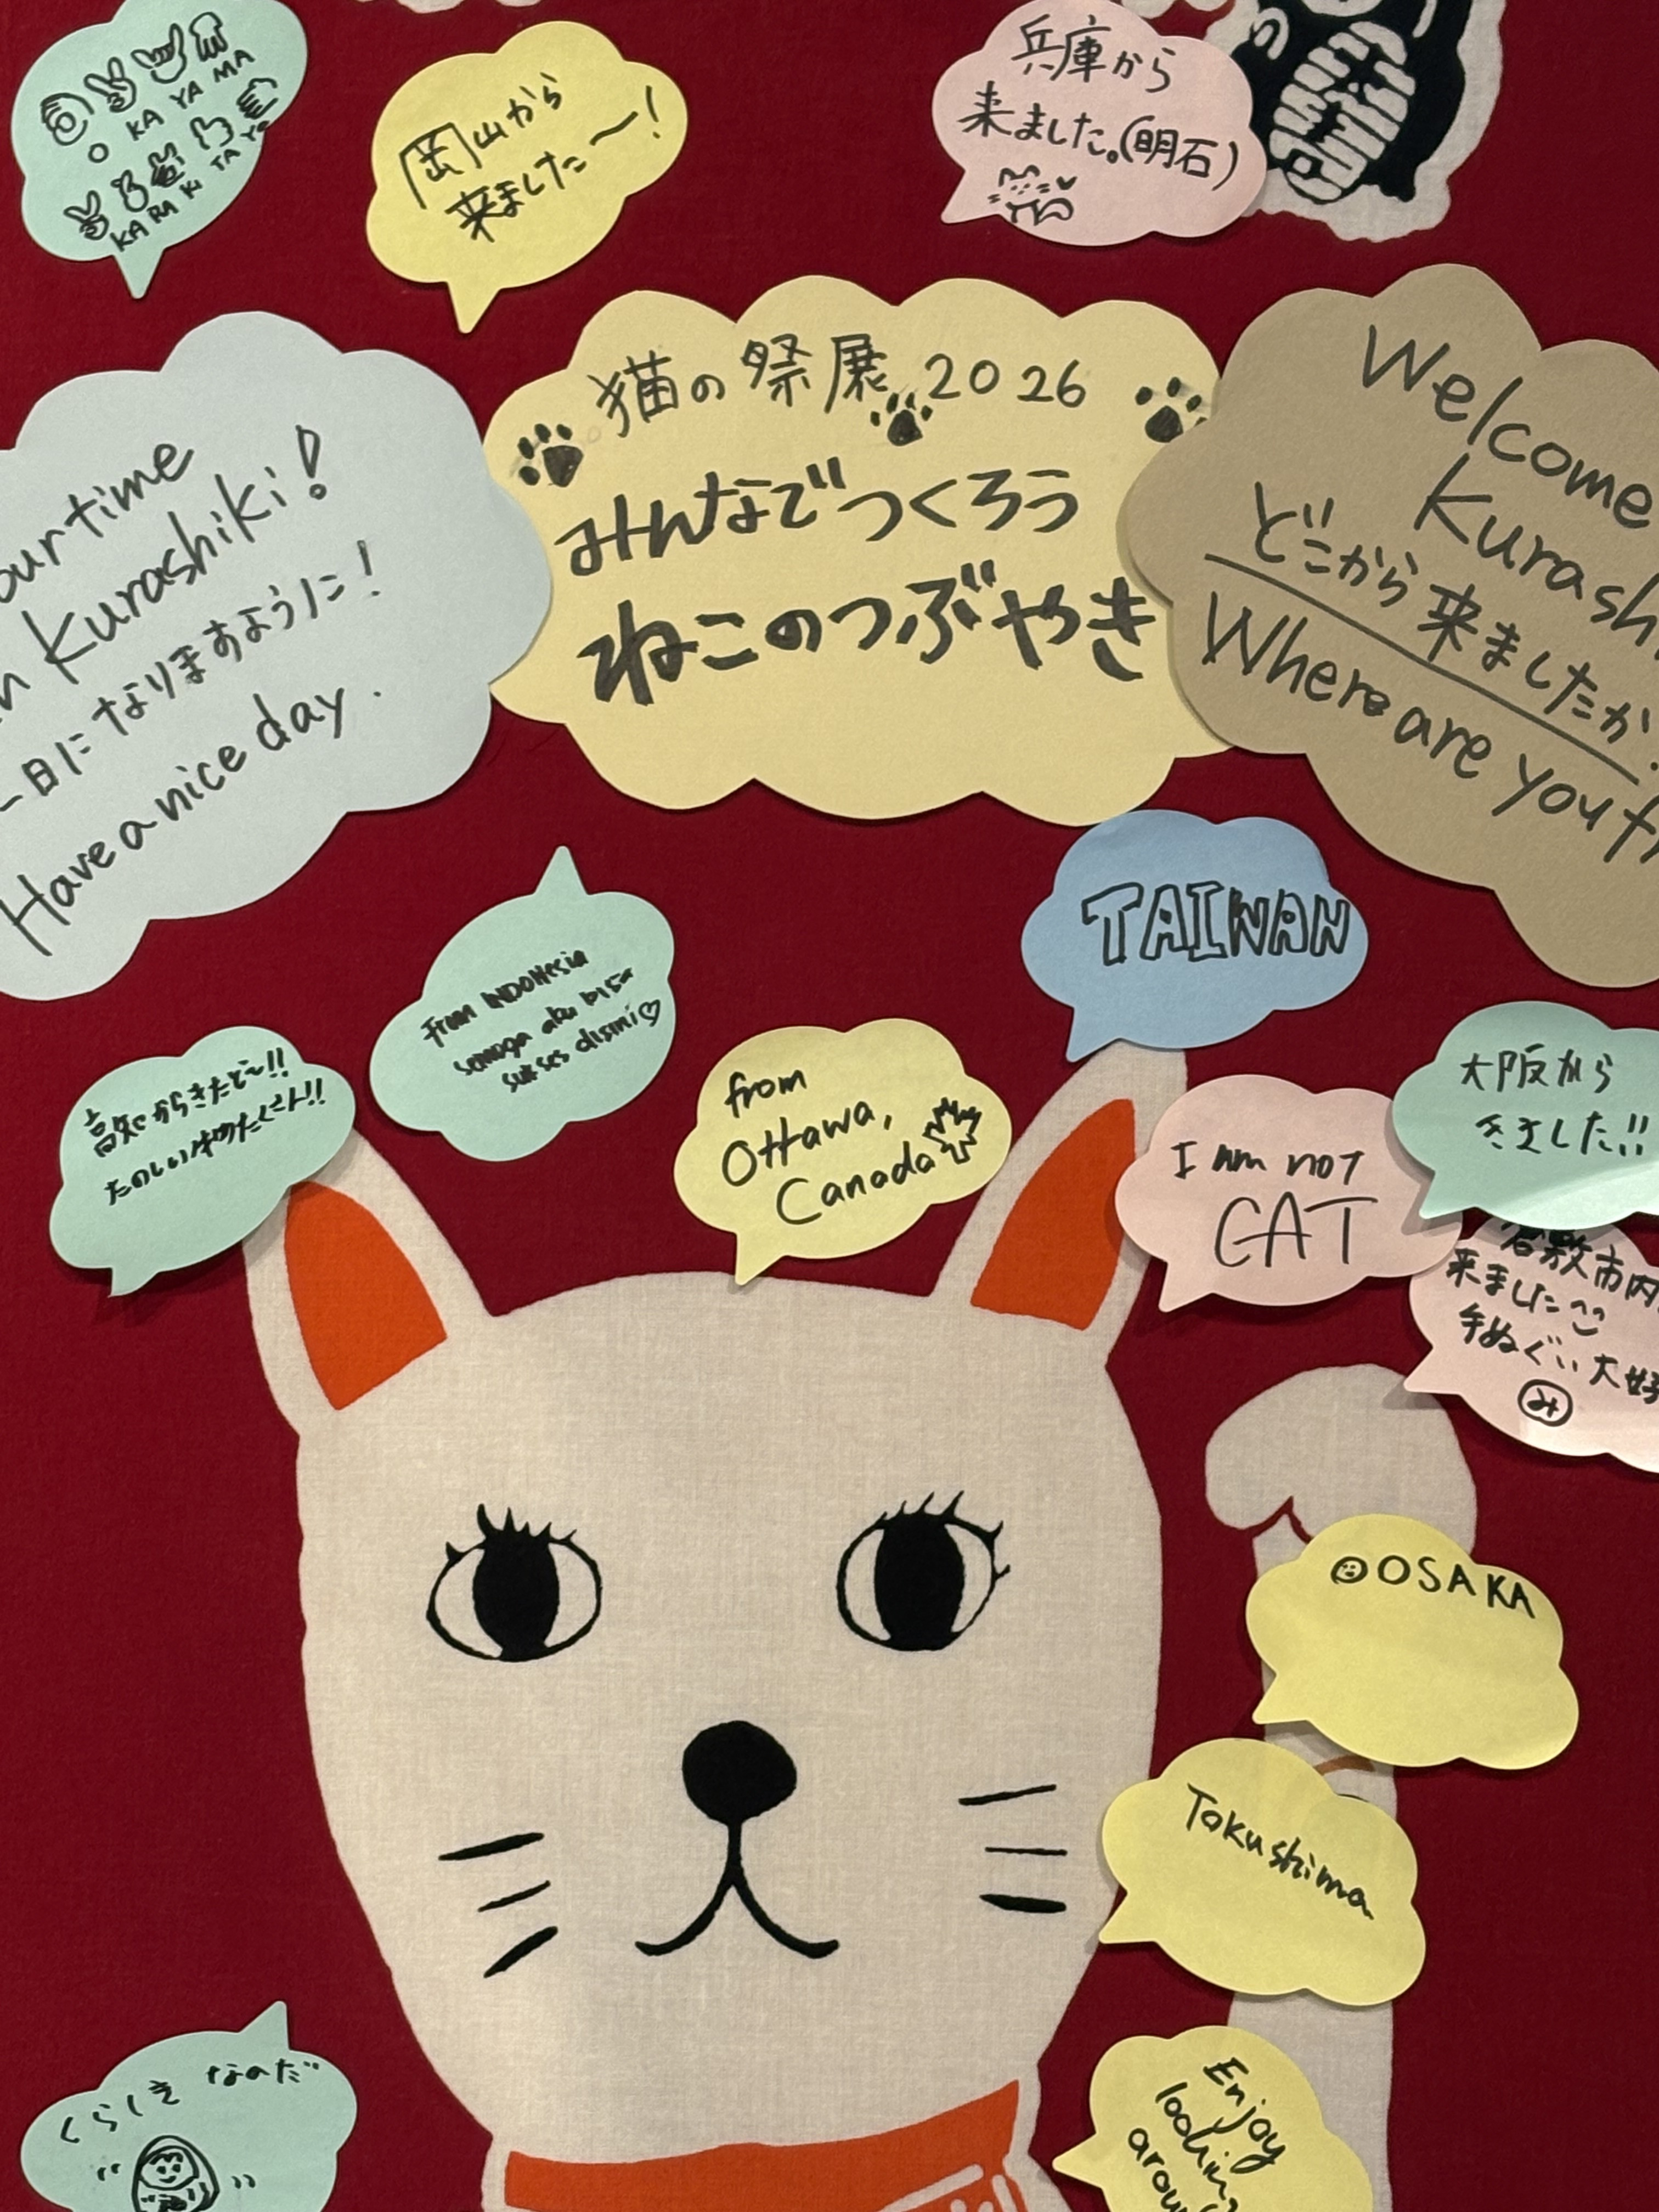 O KA YA MA
KA RA KI TA YO
岡山から
来ました〜!
兵庫から
来ました。(明石)
猫の祭展 2026
みんなでつくろう
ねこのつぶやき
our time
Kurashiki!
一日になりますように!
Have a nice day.
Welcome
Kurash
どこから来ましたか
Where are you
TAIWAN
From INDONesia
semoga aku bisa
sukses disini♡
高知からきたど〜!!
たのしい
from
Ottawa,
Canada
I am not
CAT
大阪から
きました!!
倉敷市内
来ました
手ぬぐい大好
み
OSAKA
Tokushima
くらしき なのだ
Enjoy
looking
arou